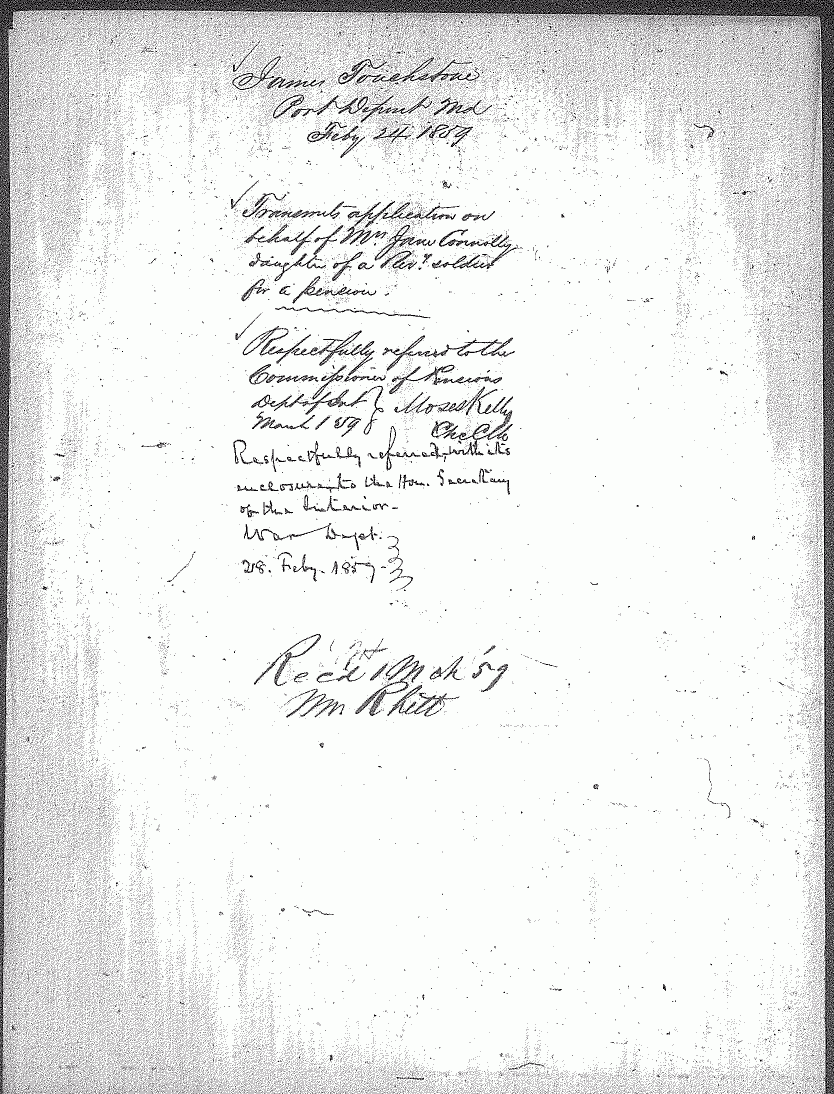 James Touchstone
Port Deposit Md
Feby 24. 1859
Transmits application on
behalf of Mrs Jane Connolly
daughter of a Revy soldier
for a pension.
Respectfully referred to the
Commissioner of Pensions
Dept of Int } Moses Kelly
March 1 59 Che Clk
Respectfully referred, with its
enclosure, to the Hon. Secretary
of the Interior-
War Dept.
28. Feby. 1859-
Rec'd 1 Mch '59
Wm Rhett